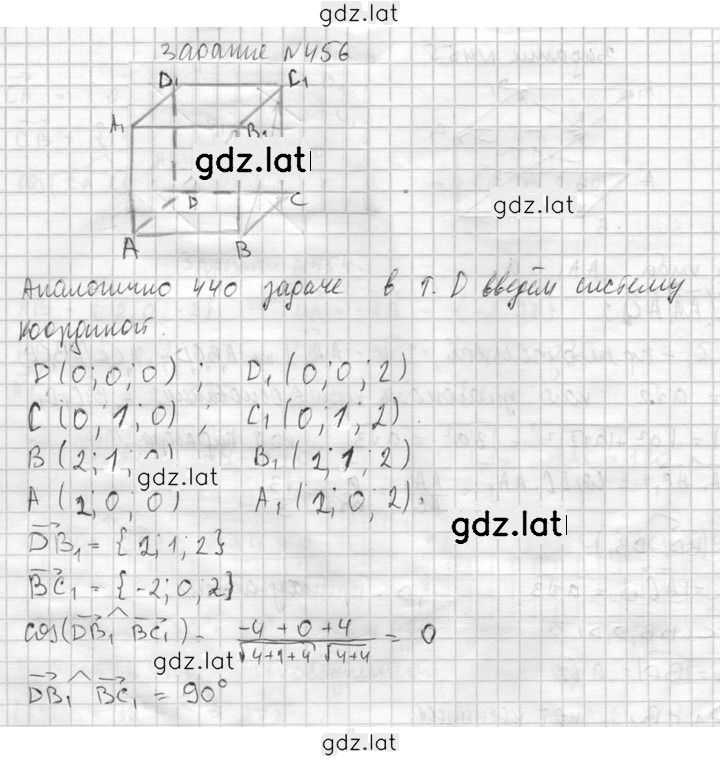 gdz.lat
задание №456
D₁ C₁
A₁ B₁
gdz.lat
gdz.lat
D C
A B
Аналогично 440 задаче в т. D введём систему
координат.
D (0; 0; 0) ; D₁ (0; 0; 2)
C (0; 1; 0) ; C₁ (0; 1; 2)
B (2; 1; 0) B₁ (2; 1; 2)
gdz.lat
A (2; 0; 0) A₁ (2; 0, 2).
gdz.lat
DB₁ = { 2; 1; 2}
BC₁ = { -2; 0; 2}
cos(DB₁ ^ BC₁) - (-4 + 0 + 4)/(√4+1+4 √4+4) = 0
gdz.lat
DB₁ ^ BC₁ = 90°
gdz.lat